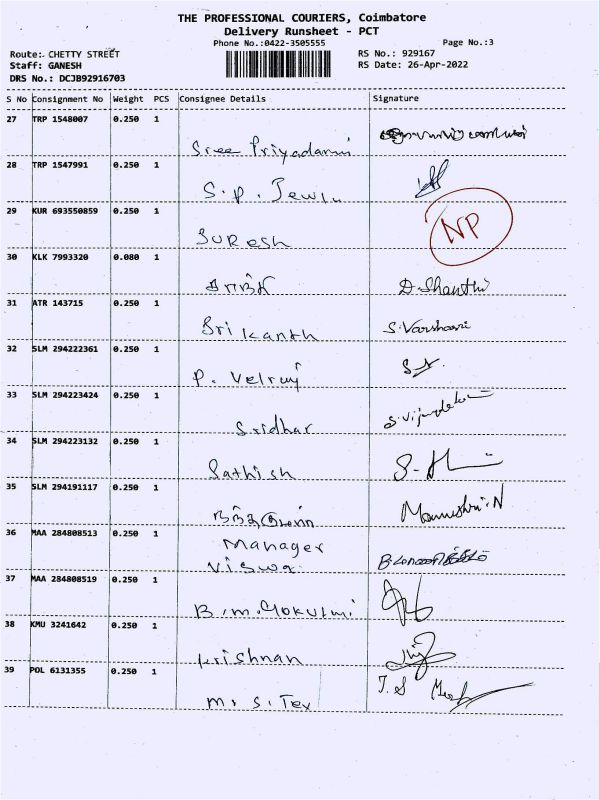 THE PROFESSIONAL COURIERS, Coimbatore
Delivery Runsheet - PCT
Phone No.:0422-3505555
Page No.:3
Route: CHETTY STREET
RS No.: 929167
Staff: GANESH
RS Date: 26-Apr-2022
DRS No.: DCJB92916703
S No Consignment No Weight PCS Consignee Details Signature
27 TRP 1548007 0.250 1
Sree
28 TRP 1547991 0.250 1
S.P.
29 KUR 693550859 0.250 1
SURESH NP
30 KLK 7993320 0.080 1
D.Shanthi
31 ATR 143715 0.250 1
Srikanth
32 SLM 294222361 0.250 1
P.
33 SLM 294223424 0.250 1
Sridhar
34 SLM 294223132 0.250 1
Sathish
35 SLM 294191117 0.250 1
36 MAA 284808513 0.250 1
Manager
Viswa
37 MAA 284808519 0.250 1
B.M.
38 KMU 3241642 0.250 1
Krishnan
39 POL 6131355 0.250 1
T.S
Mr S. Tex